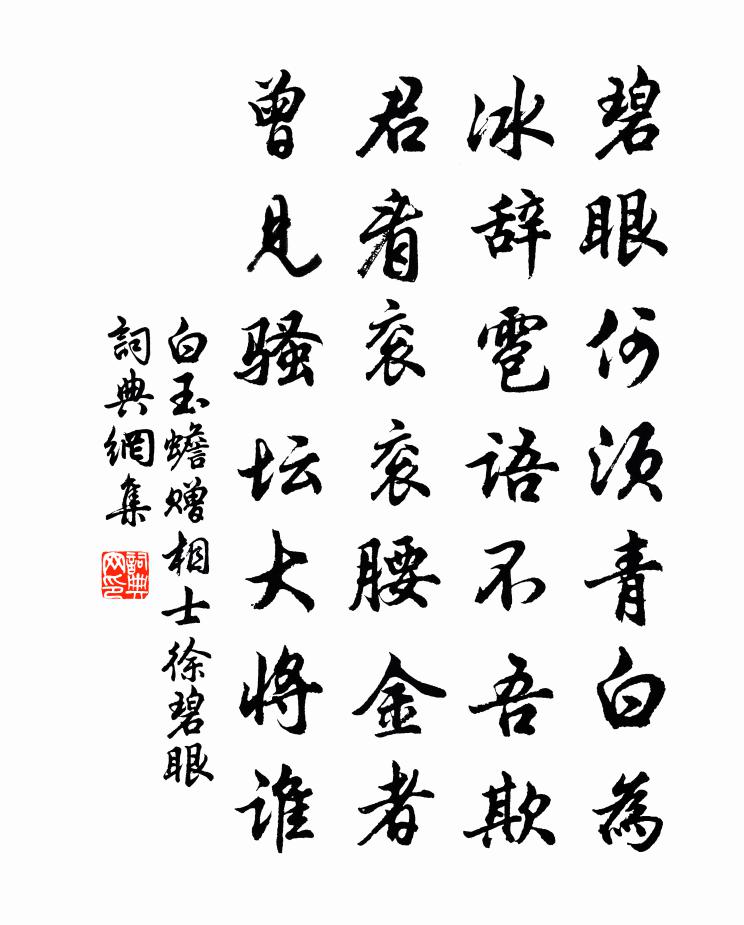 碧眼何须青白為
冰辞雹语不吾欺
君看衮衮腰金者
曾见骚坛大将谁
白玉蟾赠相士徐碧眼
詞典網集
詞典网印